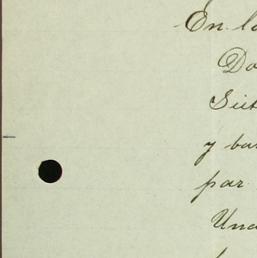 En l
Do
Siet
y ba
par
Una